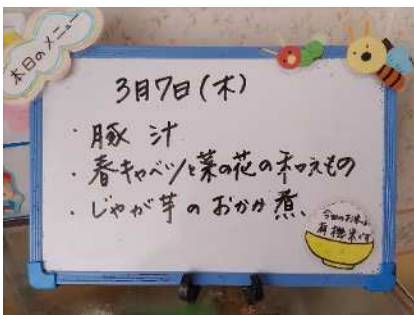 本日のメニュー
3月7日(木)
・豚汁
・春キャベツと菜の花の和えもの
・じゃが芋のおかか煮
今日のお米は
有機米です